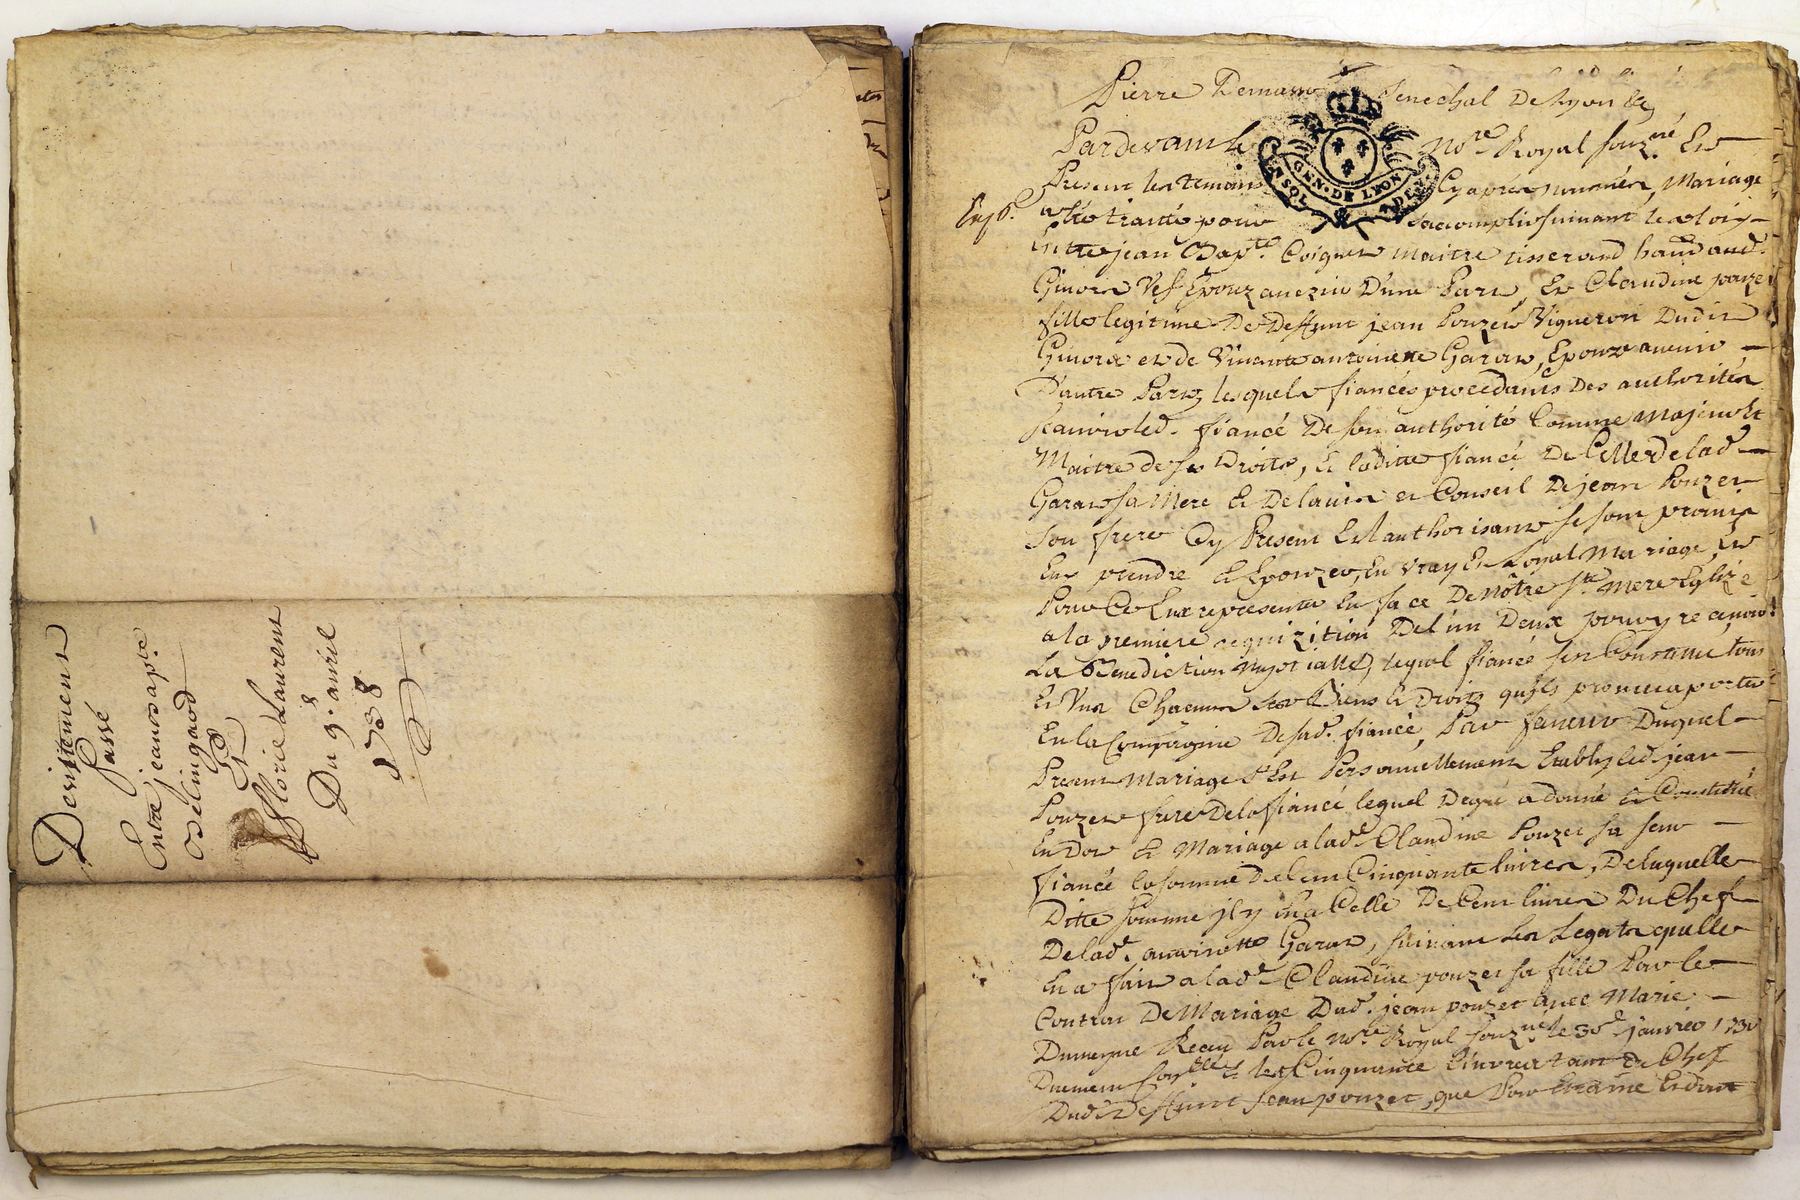 Desistement
passé
Entre jean bapte.
Belingard
Et
Florie Laurent
Du 9e. avril
1738
Pierre Demasso Senechal De Lyon &c
Pardevant le Nore. Royal souzné Et
Present les temoins Cy après nommés, Mariage
Exp.
a été traitté pour s'accomplir suivant les loix
Entre jean Bapte. Coignet Maitre tisserand
Givors D'une Part, Et Claudine pouzet
fille legitime De Deffunt jean Pouzet Vigneron Dudit
Givors et de Vivante antoinette Garon,
D'autre Part, lesquels fiancés procedants Des authorités
sçavoir led. fiancé De son authorité Comme Majeur Et
Maitre de ses Droits, Et laditte fiancé De Celle de lad.
Garon sa Mere Et De l'avis et Conseil De jean Pouzet
son frere Cy Present Et l'authorisant se sont promis
Eux prendre et Epouzer, En vray Et Loyal Mariage, Et
Pour Ce Eux representer En face De Nôtre Ste. Mere Eglize
a la premiere requizition De l'un D'eux pour y recevoir
La Benediction Nuptialle, lequel fiancé s'est Constitué tous
Et Uns Chacuns ses Biens Et Droits qu'il promet aporter
En la Compagnie De sad. fiancé, Par faveur Duquel
Present Mariage s'Est Personnellement Etably led. jean
Pouzet frere De la fiancé lequel De gré a donné Et Constitué
En Dot Et Mariage a lade. Claudine Pouzet sa seur
fiancé la somme De Cent Cinquante livres, De laquelle
Ditte somme jl y En a Celle De Cent livres Du Chef
De lade. antoinette Garon, suivant Les Legats qu'elle
En a fait a lade. Claudine pouzet sa fille Par le
Contrat De Mariage Dud. jean pouzet avec Marie
Reçu Par le nore. Royal souzné le 30e janvier
Et les Cinquante Livres tant du Chef
Dud. Deffunt jean pouzet, que Pour